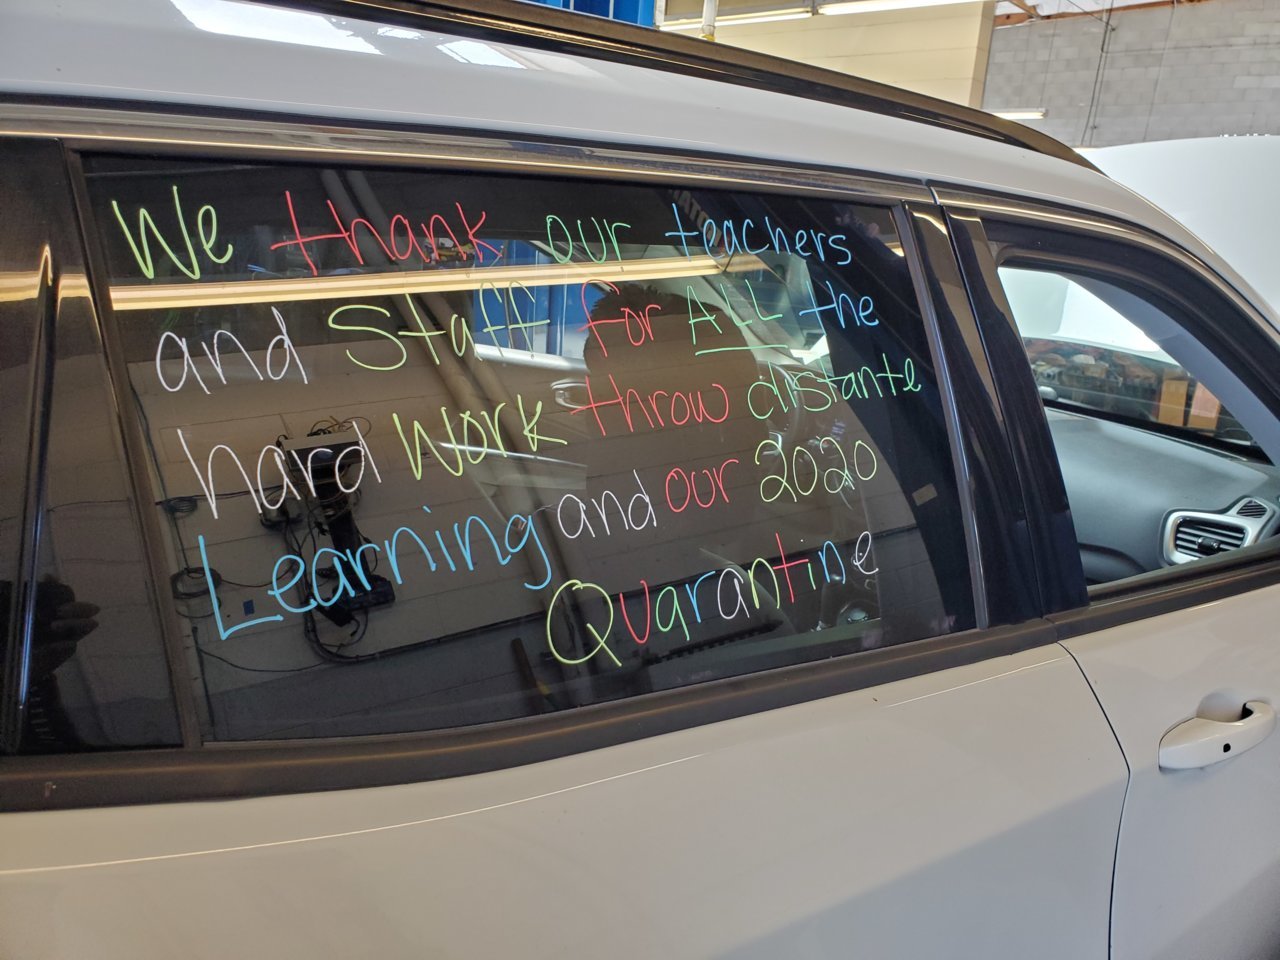 We thank our teachers
and Staff for ALL the
hard Work throw distante
Learning and our 2020
Quarantine